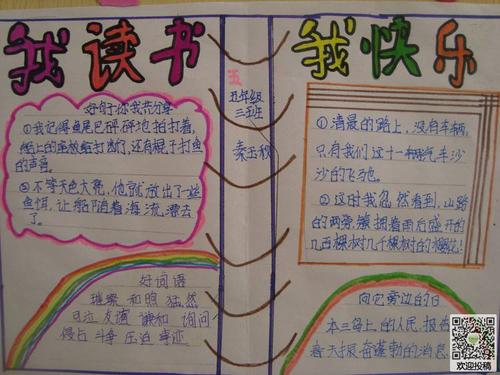 我读书
好句子你我共分享
①我记得鱼尾巴砰砰地拍打着,
船上的座板给打断了,还有棍子打鱼
的声音。
②不等天色大亮,他就放出了一些
鱼饵,让船随着海流漂去
了。
好词语
璀璨 和煦 猛然
友谊 询问
侵占 斗争 压迫 事迹
五
五年级
三班
秦玉
我快乐
①清晨的路上,没有车辆,
只有我们这十一辆汽车沙
沙的飞驰。
②这时我忽然看到,山路
的两旁,簇拥着雨后盛开的
几百棵树几千棵树的樱花!
向它旁边的日
本三岛上的人民,报告
春天振奋蓬勃的消息
欢迎投稿